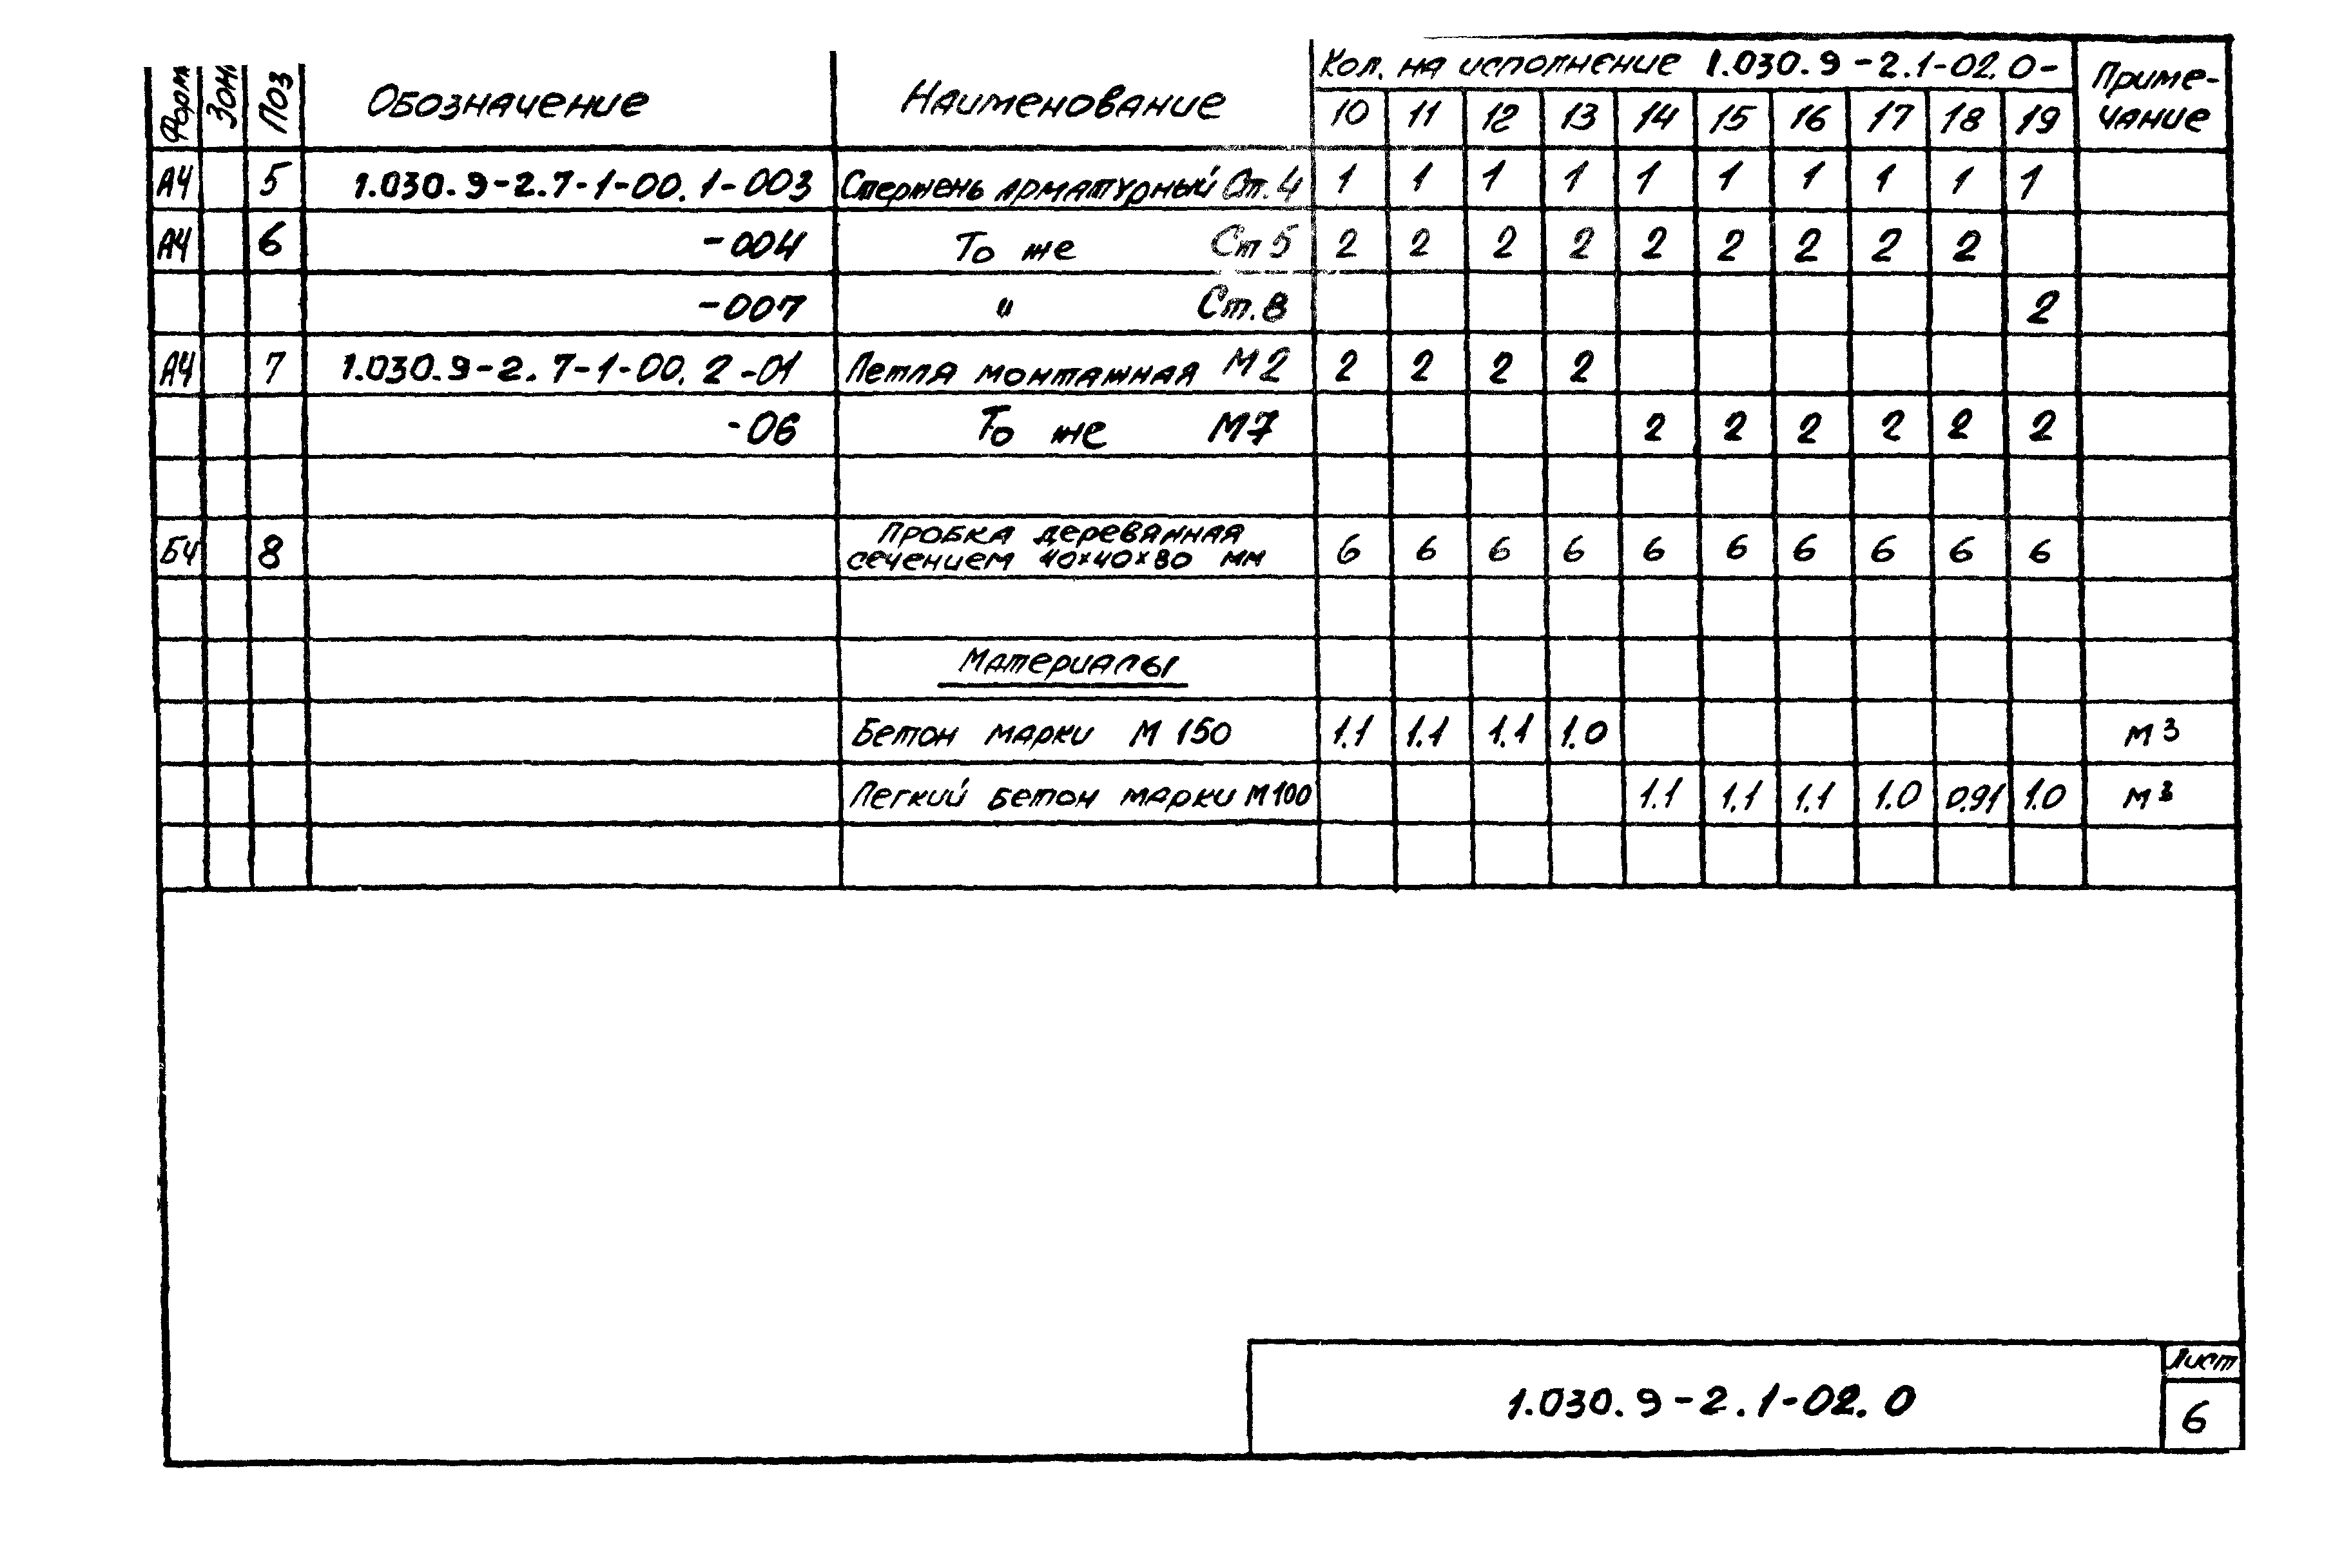 Форм Зон Поз Обозначение Наименование Кол. на исполнение 1.030.9-2.1-02.0- Приме-
чание
10 11 12 13 14 15 16 17 18 19
А4 5 1.030.9-2.7-1-00.1-003 Стержень арматурный Ст.4 1 1 1 1 1 1 1 1 1 1
А4 6 -004 То же Ст 5 2 2 2 2 2 2 2 2 2
-007 " Ст.8 2
А4 7 1.030.9-2.7-1-00.2-01 Петля монтажная М2 2 2 2 2
-06 То же М7 2 2 2 2 2 2
Пробка деревянная
Б4 8 сечением 40х40х80 мм 6 6 6 6 6 6 6 6 6 6
Материалы
Бетон марки М 150 1.1 1.1 1.1 1.0 м3
Легкий бетон марки М100 1.1 1.1 1.1 1.0 0.91 1.0 м3
Лист
1.030.9-2.1-02.0 6